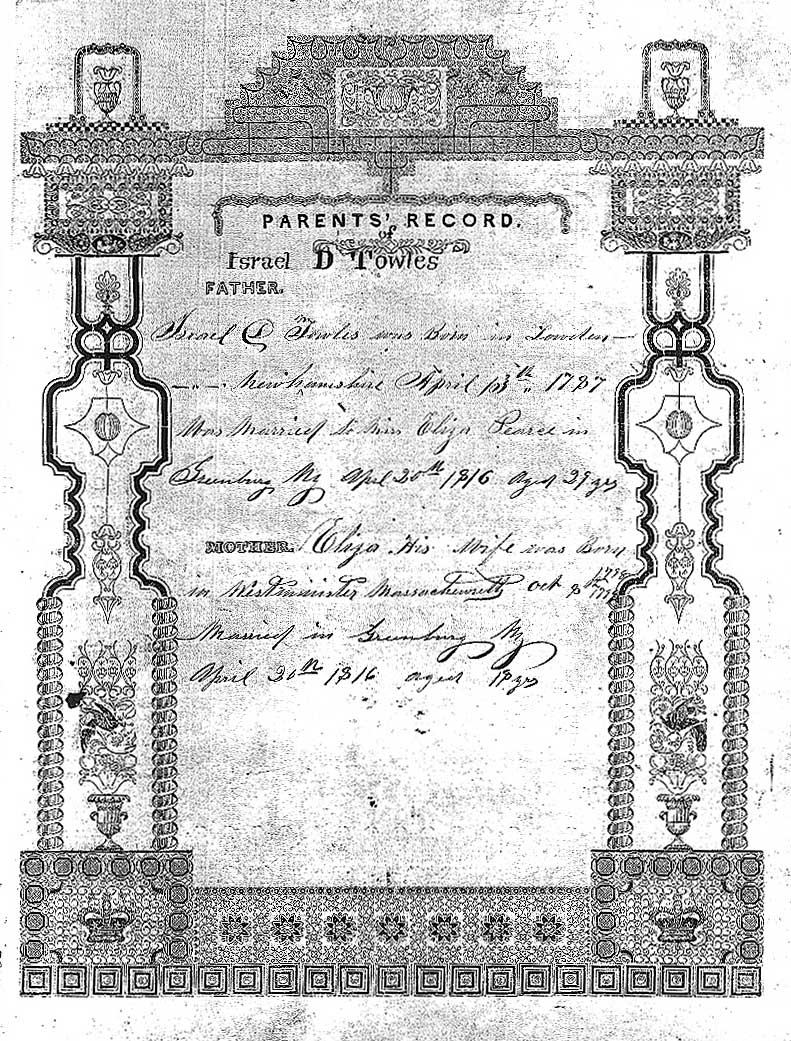 PARENTS' RECORD.
of
Israel D Towles
FATHER.
Israel D Towles was Born in Lowden
— " — Newhamshire April 13th " 1787
Was Married to him Eliza Pearce in
Greenburg Ky April 20th 1816 Aged 29 yrs
MOTHER. Eliza His Wife was Born
in Westminister Massachewsetts Oct 8th 1798
Married in Greenburg Ky
April 20th 1816 aged 18 yrs